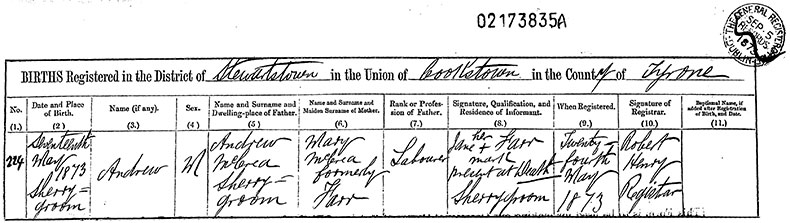 02173835A
THE GENERAL REGISTER
SEP 5
1873
DUBLIN
BIRTHS Registered in the District of Stewartstown in the Union of Cookstown in the County of Tyrone
No. Date and Place of Birth. Name (if any). Sex. Name and Surname and Dwelling-place of Father. Name and Surname and Maiden Surname of Mother. Rank or Profession of Father. Signature, Qualification, and Residence of Informant. When Registered. Signature of Registrar. Baptismal Name, if added after Registration of Birth, and Date.
(1.) (2.) (3.) (4.) (5.) (6.) (7.) (8.) (9.) (10.) (11.)
224
Seventeenth
May
1873
Sherry=
groom
Andrew
M
Andrew
McCrea
Sherry=
groom
Mary
McCrea
formerly
Farr
Labourer
her
Jane + Farr
mark
present at Death
Sherrygroom
Twenty
fourth
May
1873
Robert
Henry
Registrar